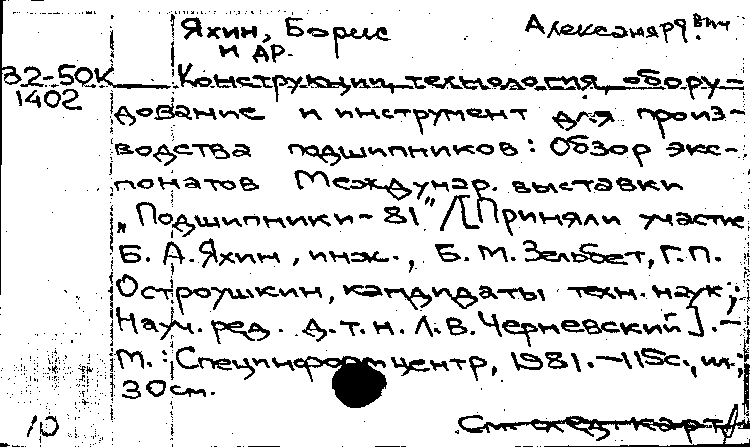 Яхин, Борис Александрович
и др.
32-50К
1402
Конструкции, технология, обору-
дование и инструмент для произ-
водства подшипников: Обзор экс-
понатов Междунар. выставки
„Подшипники-81"/[Приняли участие
Б. А. Яхин, инж., Б. М. Зельбет, Г. П.
Остроушкин, кандидаты техн. наук;
Науч. ред. д. т. н. Л. В. Черневский]. –
М.: Специнформцентр, 1981. – 115с., ил.;
30см.
10
См. след. карт.